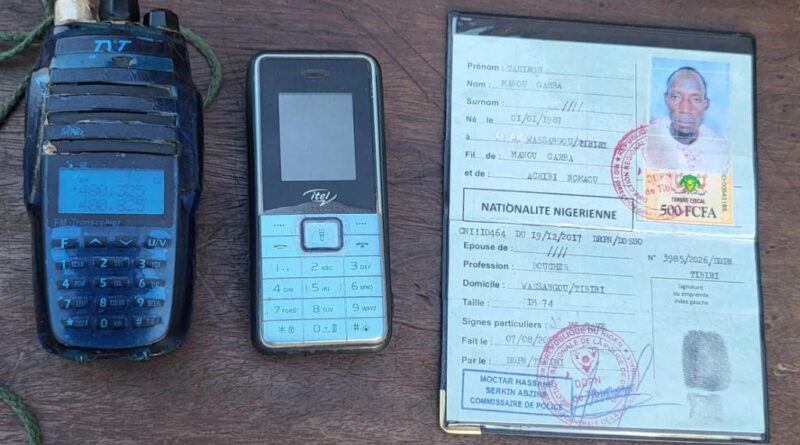 TYT
-480.325
480.825
FM Transceiver
F
U/V
1 SCAN
2
3
4
5
6
7
8
9
0
itel
1
2 ABC
3 DEF
4 GHI
5 JKL
6 MNO
7 PQRS
8 TUV
9 WXYZ
0
#
Prénom : TAHIROU
Nom : MANOU GAMBA
Surnom : ////
Né le : 01/01/1987
à WASSANGOU/TIBIRI
Fil de : MANOU GAMBA
et de : ACHIBI NOMAOU
NATIONALITE NIGERIENNE
TIMBRE FISCAL
500 FCFA
CNI:10464 DU 19/12/2017 DRPN/DOSSO
Epouse de : ////
Profession : BOUCHER
Domicile : WASSANGOU/TIBIRI
Taille : IM 74
Signes particuliers :
Fait le : 07/08
Par le : DDPN/TIBIRI
N° 3985/2026/DDPN
TIBIRI
Signature
ou empreinte
index gauche
MOCTAR HASSANE
SERKIN ABZINE
COMMISSAIRE DE POLICE
DDPN